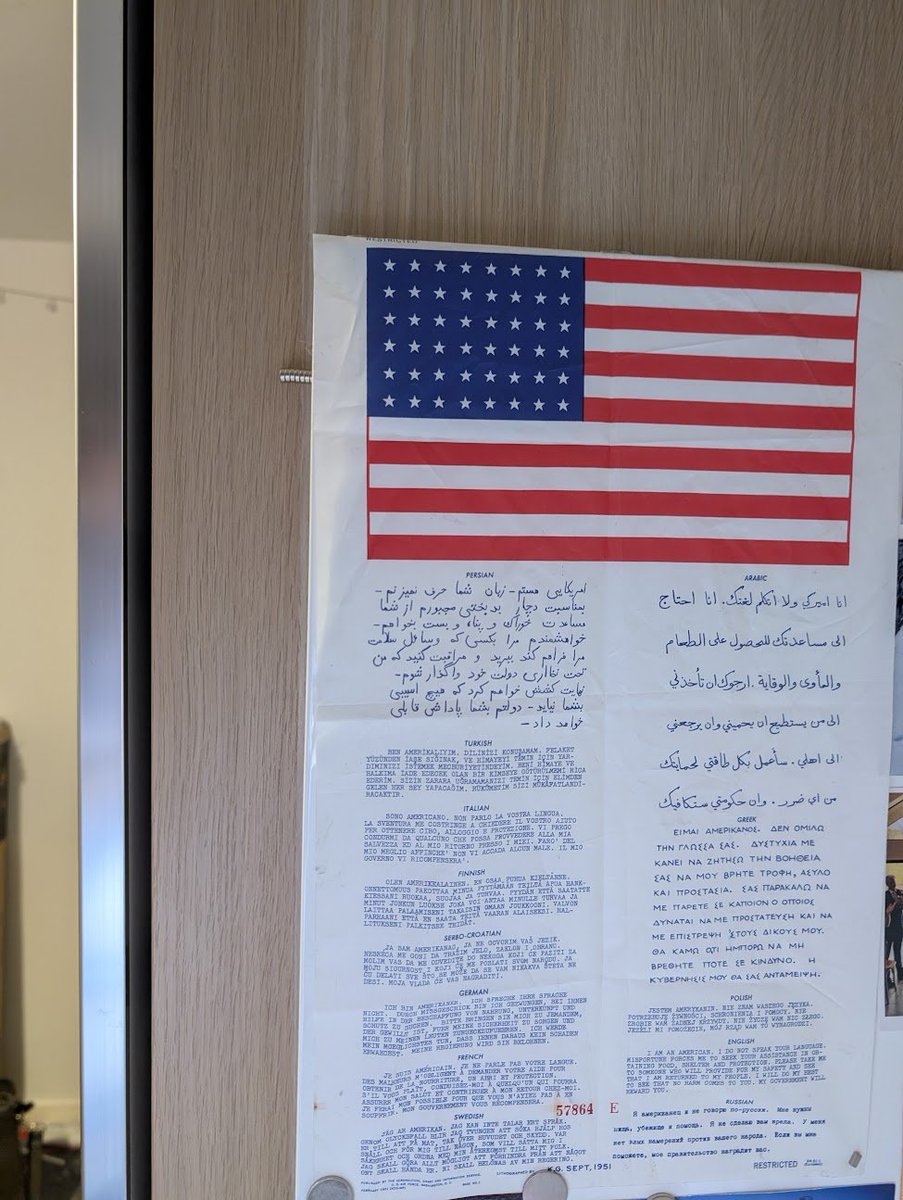 RESTRICTED
PERSIAN
امریکایی هستم - زبان شما حرف نمیزنم -
بمناسبت دچار بدبختی مجبورم از شما
مساعدت خوراک و پناه و بست بخواهم -
خواهشمندم مرا بکسی که وسائل سلامت
مرا فراهم کند ببرید و مراقبت کنید که من
تحت نظاری دولت خود واگذار شوم -
نهایت کشش خواهم کرد که هیچ اسیبی
بشما نیاید - دولتم بشما پاداش قابلی
خواهد داد -
TURKISH
BEN AMERIKALIYIM. DILINIZI KONUŞAMAM. FELAKET
YÜZÜNDEN IAŞE SIĞINAK, VE HIMAYEYI TEMIN IÇIN YAR-
DIMINIZI ISTEMEK MECBURIYETINDEYIM. BENI HIMAYE VE
HALKIMA IADE EDECEK OLAN BIR KIMSEYE GÖTÜRÜLMEMI RICA
EDERIM. SIZIN ZARARA UĞRAMAMANIZI TEMIN IÇIN ELIMDEN
GELEN HER SEY YAPACAĞIM. HÜKÛMETIM SIZI MÜKÂFATLANDI-
RACAKTIR.
ITALIAN
SONO AMERICANO. NON PARLO LA VOSTRA LINGUA.
LA SVENTURA ME COSTRINGE A CHIEDERE IL VOSTRO AIUTO
PER OTTENERE CIBO, ALLOGGIO E PROTEZIONE. VI PREGO
CONDURMI DA QUALCUNO CHE POSSA PROVVEDERE ALLA MIA
SALVEZZA ED AL MIO RITORNO PRESSO I MIEI. FARO' DEL
MIO MEGLIO AFFINCHE' NON VI ACCADA ALCUN MALE. IL MIO
GOVERNO VI RICOMPENSERA'.
FINNISH
OLEN AMERIKKALAINEN. EN OSAA PUHUA KIELTÄNNE.
ONNETTOMUUS PAKOTTAA MINUA PYYTÄMÄÄN TEILTÄ APUA HANK-
KIESSANI RUOKAA, SUOJAA JA TURVAA. PYYDÄN ETTÄ SAATATTE
MINUT JONKUN LUOKSE JOKA VOI ANTAA MINULLE TURVAA JA
LAITTAA PALAAMISENI TAKAISIN OMAAN JOUKKOONI. KOITAN
PARHAANI ETTÄ EN SAATA TEITÄ VAARAN ALAISEKSI. HAL-
LITUKSENI PALKITSEE TEIDÄT.
SERBO-CROATIAN
JA SAM AMERIKANAC, JA NE GOVORIM VAŠ JEZIK.
NESREĆA ME GONI DA TRAŽIM JELO, ZAKLON I OBRANU.
MOLIM VAS DA ME ODVEDITE DO NEKOGA KOJI ĆE PAZITI ZA
MOJU SIGURNOST I KOJI ĆE ME POSLATI SVOM NARODU. JA
ĆU DELATI SVE ŠTO SE MOŽE DA SE VAM NIKAKVA ŠTETA NE
DESI. MOJA VLADA ĆE VAS NAGRADITI.
GERMAN
ICH BIN AMERIKANER. ICH SPRECHE IHRE SPRACHE
NICHT. DURCH MISSGESCHICK BIN ICH GEZWUNGEN, BEI IHNEN
HILFE IN DER BESCHAFFUNG VON NAHRUNG, UNTERKUNFT UND
SCHUTZ ZU SUCHEN. BITTE BRINGEN SIE MICH ZU JEMANDEM,
DER GEWILLT IST, FUER MEINE SICHERHEIT ZU SORGEN UND
MICH ZU MEINEN LEUTEN ZURUECKZUFUEHREN. ICH WERDE
MEIN MOEGLICHSTES TUN, DASS IHNEN DARAUS KEIN SCHADEN
ERWAECHST. MEINE REGIERUNG WIRD SIE BELOHNEN.
FRENCH
JE SUIS AMÉRICAIN. JE NE PARLE PAS VOTRE LANGUE.
DES MALHEURS M'OBLIGENT À DEMANDER VOTRE AIDE POUR
OBTENIR DE LA NOURRITURE, UN ABRI ET PROTECTION.
S'IL VOUS PLAÎT, CONDUISEZ-MOI À QUELQU'UN QUI POURRA
ASSURER MON SALUT ET CONTRIBUER À MON RETOUR CHEZ-MOI.
JE FERAI MON POSSIBLE POUR QUE VOUS N'AYIEZ PAS À EN
SOUFFRIR. MON GOUVERNEMENT VOUS RÉCOMPENSERA.
SWEDISH
JAG ÄR AMERIKAN. JAG KAN INTE TALAR ERT SPRÅK.
GENOM OLYCKSFALL BLIR JAG TVUNGEN ATT SÖKA HJÄLP HOS
ER TILL ATT FÅ MAT, TAK ÖVER HUVUDET OCH SKYDD. VAR
SNÄLL OCH FÖR MIG TILL NÅGON, SOM VILL SÄTTA MIG I
SÄKERHET OCH ORDNA MED MIN ÅTERKOMST TILL MITT FOLK.
JAG SKALL GÖRA ALLT MÖJLIGT ATT FÖRHINDRA FRÅN ATT NÅGOT
ONT SKALL HÄNDA ER. NI SKALL BELÖNAS AV MIN REGERING.
ARABIC
انا اميركي ولا اتكلم لغتك. انا احتاج
الى مساعدتك للحصول على الطعام
والمأوى والوقاية. ارجوك ان تأخذني
الى من يستطيع ان يحميني وان يرجعني
الى اهلي. سأعمل بكل طاقتي لحمايتك
من اي ضرر. وان حكومتي ستكافيك
GREEK
ΕΙΜΑΙ ΑΜΕΡΙΚΑΝΟΣ. ΔΕΝ ΟΜΙΛΩ
ΤΗΝ ΓΛΩΣΣΑ ΣΑΣ. ΔΥΣΤΥΧΙΑ ΜΕ
ΚΑΝΕΙ ΝΑ ΖΗΤΗΣΩ ΤΗΝ ΒΟΗΘΕΙΑ
ΣΑΣ ΝΑ ΜΟΥ ΒΡΗΤΕ ΤΡΟΦΗ, ΑΣΥΛΟ
ΚΑΙ ΠΡΟΣΤΑΣΙΑ. ΣΑΣ ΠΑΡΑΚΑΛΩ ΝΑ
ΜΕ ΠΑΡΕΤΕ ΣΕ ΚΑΠΟΙΟΝ Ο ΟΠΟΙΟΣ
ΔΥΝΑΤΑΙ ΝΑ ΜΕ ΠΡΟΣΤΑΤΕΥΣΗ ΚΑΙ ΝΑ
ΜΕ ΕΠΙΣΤΡΕΨΗ ΣΤΟΥΣ ΔΙΚΟΥΣ ΜΟΥ.
ΘΑ ΚΑΜΩ ΟΤΙ ΗΜΠΟΡΩ ΝΑ ΜΗ
ΒΡΕΘΗΤΕ ΠΟΤΕ ΣΕ ΚΙΝΔΥΝΟ. Η
ΚΥΒΕΡΝΗΣΙΣ ΜΟΥ ΘΑ ΣΑΣ ΑΝΤΑΜΕΙΨΗ.
POLISH
JESTEM AMERYKANIN. NIE ZNAM WASZEGO JĘZYKA.
POTRZEBUJĘ ŻYWNOŚCI, SCHRONIENIA I POMOCY. NIE
ZROBIĘ WAM ŻADNEJ KRZYWDY. NIE ŻYCZĘ WAM NIC ZŁEGO.
JEŻELI MI POMOŻECIE, MÓJ RZĄD WAM TO WYNAGRODZI.
ENGLISH
I AM AN AMERICAN. I DO NOT SPEAK YOUR LANGUAGE.
MISFORTUNE FORCES ME TO SEEK YOUR ASSISTANCE IN OB-
TAINING FOOD, SHELTER AND PROTECTION. PLEASE TAKE ME
TO SOMEONE WHO WILL PROVIDE FOR MY SAFETY AND SEE
THAT I AM RETURNED TO MY PEOPLE. I WILL DO MY BEST
TO SEE THAT NO HARM COMES TO YOU. MY GOVERNMENT WILL
REWARD YOU.
RUSSIAN
Я американец и не говорю по-русски. Мне нужны
пища, убежище и помощь. Я не сделаю вам вреда. У меня
нет злых намерений против вашего народа. Если вы мне
поможете, мое правительство наградит вас.
57864 E
RESTRICTED
LITHOGRAPHED BY K.G. SEPT, 1951
PUBLISHED BY THE AERONAUTICAL CHART AND INFORMATION SERVICE,
U.S. AIR FORCE, WASHINGTON, D. C.
FEBRUARY 1951